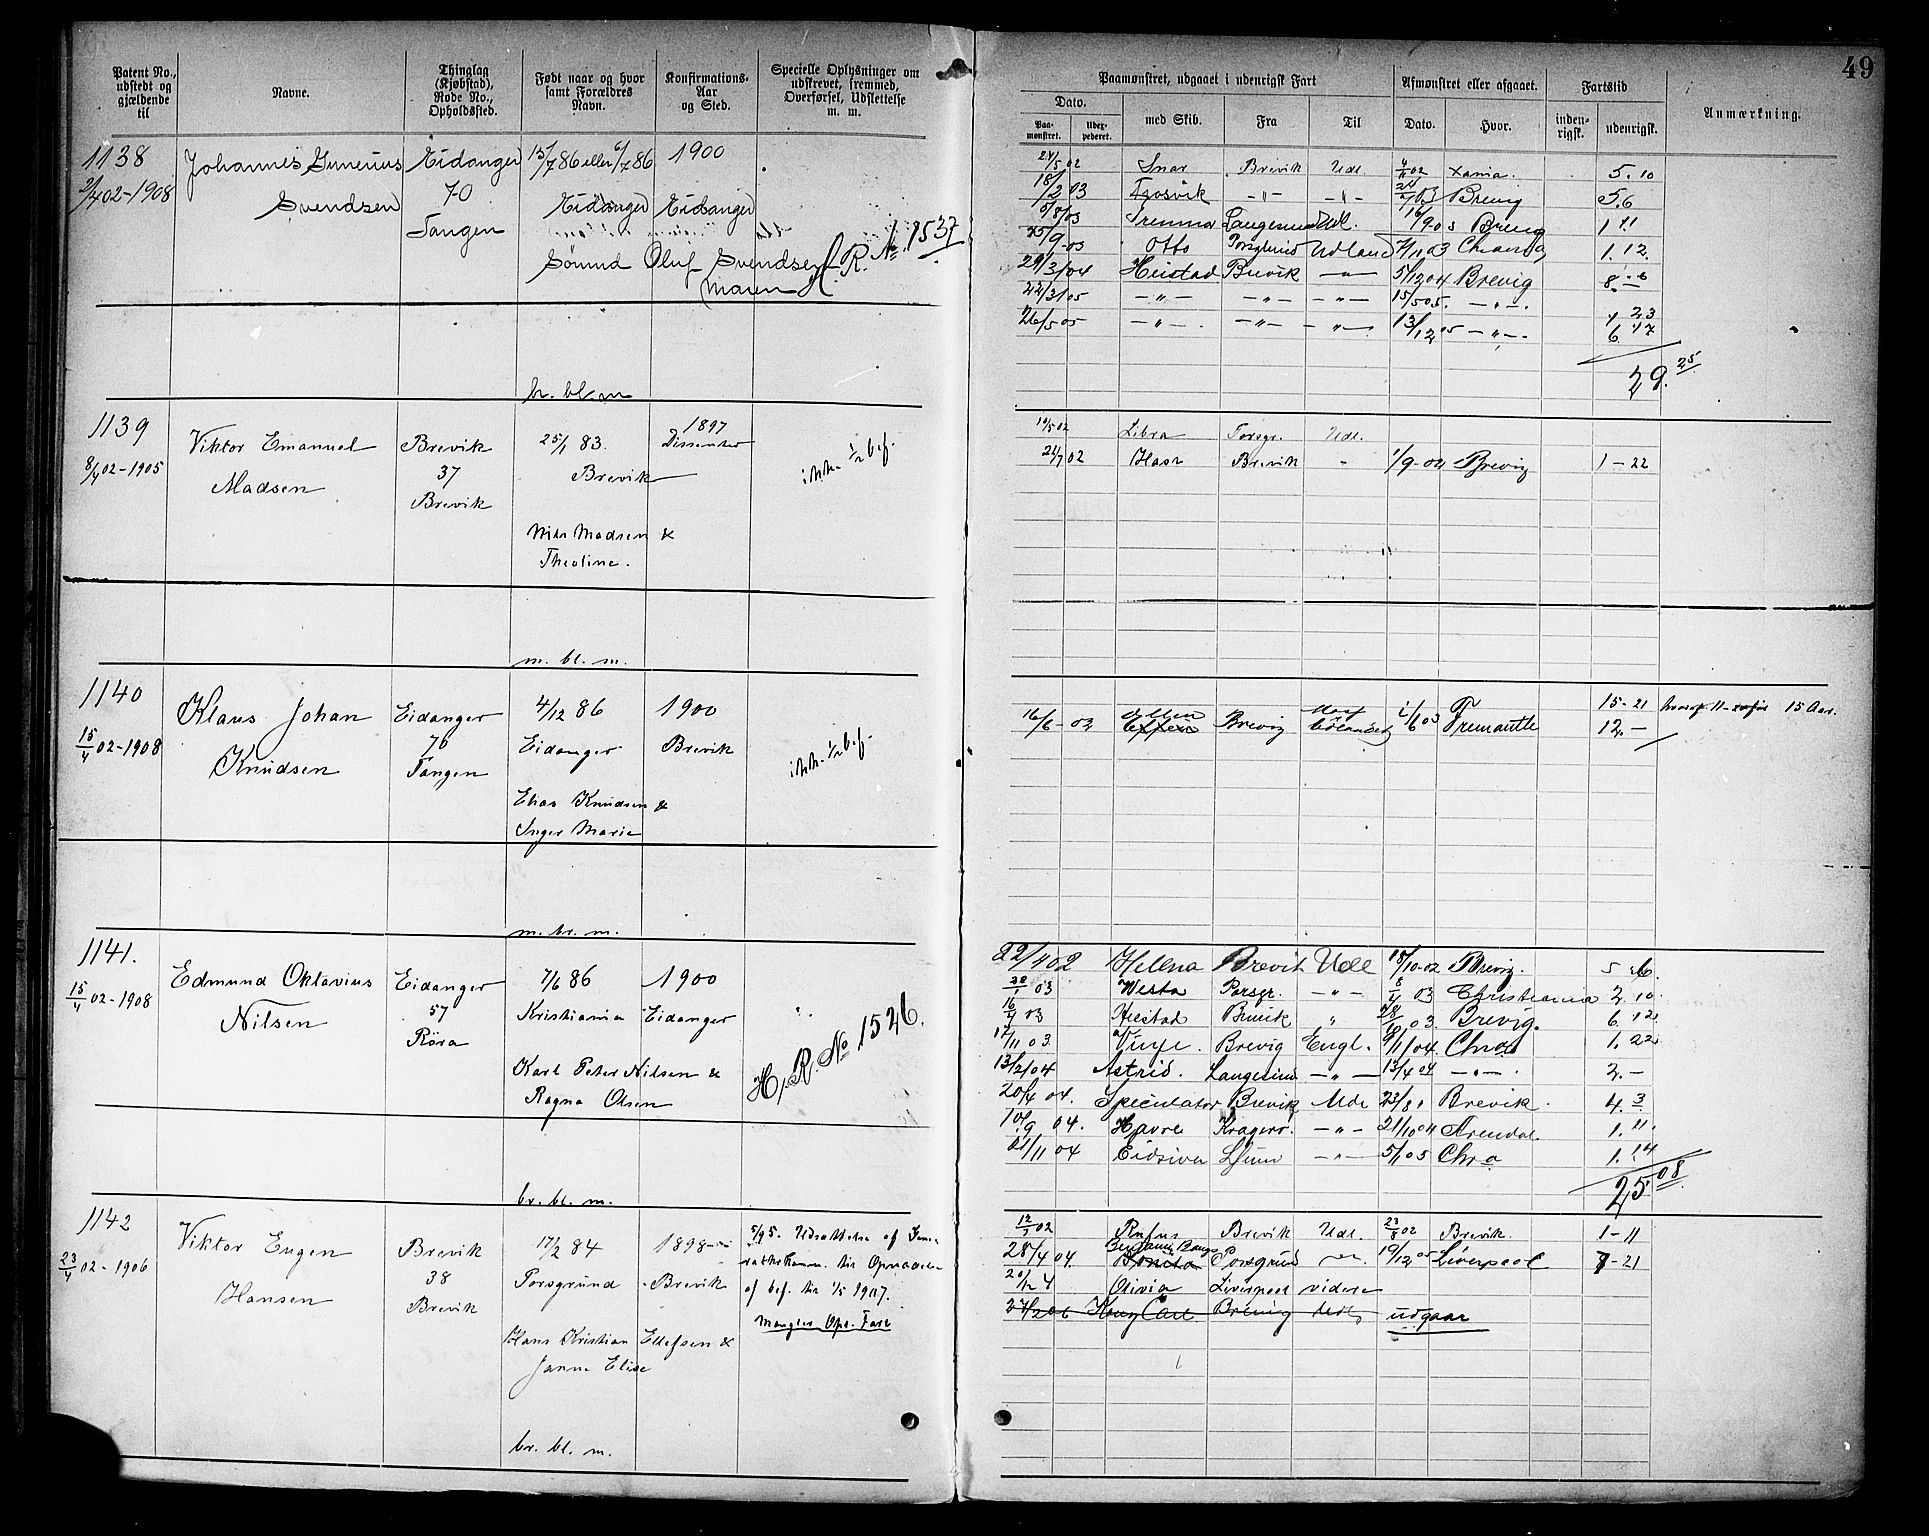 49
Patent No., udstedt og gjældende til
Navne.
Thinglag (Kjøbstad), Rode No., Opholdssted.
Født naar og hvor samt Forældres Navn.
Konfirmations-Aar og Sted.
Specielle Oplysninger om udskrevet, fremmed, Overførsel, Udslettelse m. m.
Paamønstret, udgaaet i udenrigsk Fart
Afmønstret eller afgaaet.
Fartstid
Anmærkning.
Dato.
Paa-mønstret.
Uder-pederet.
med Skib.
Fra
Til
Dato.
Hvor.
inden-rigsk.
udenrigsk.
1138
2/4 02-1908
Johannes
Svendsen
Eidanger
70
Tangen
15/7 86 eller 6/7 86
Eidanger
Oluf Svendsen
Maren
1900
Eidanger
H. R. No 1537
br. bl. m
24/5 02 Snar Brevik Udl. 4/11 02 Xania. 5.10
18/2 03 Fgosvik -"- -"- 24/7 03 Brevig 5.6
5/8 03 Langesund Udl. 16/9 03 Brevig 1 11
25/9 03 Otto Porsgrund Udland 7/11 03 Chania 1.12
29/3 04 Heistad Brevik -"- 5/12 04 Brevig 8.6
22/3 05 -"- -"- -"- 15/5 05. -"- 1 23
26/5 05 -"- -"- -"- 13/12 05 -"- 6 17
29. 25
1139
8/4 02-1905
Viktor Emanuel
Madsen
Brevik
37
Brevik
25/1 83.
Brevik
Nils Madsen &
Theoline.
1897
Dissenter
ikke 1/2 bef.
m. bl. m.
10/5 02 Libra Porsgr. Udl.
21/7 02 Hast Brevik - 1/9-02 Brevig 1-22
1140
15/4 02-1908
Klaus Johan
Knudsen
Eidanger
76
Tangen
4/12 86
Eidanger
Elias Knudsen &
Inger Marie
1900
Brevik
ikke 1/2 bef.
m. br. m.
16/6-02 Ellen Brevig 1/6 03 Fremantle 15-21 15 Aar.
12.-
1141.
15/4 02-1908
Edmund Oktavius
Nilsen
Eidanger
57
Røra
7/6 86
Kristiania
Karl Peter Nilsen &
Ragna Olsen
1900
Eidanger
H. R. No 1526.
br. bl. m.
22/4 02 Hellena Brevik Udl 18/10-02 Brevig. 5 26.
28/1 03 Westa Porsgr. -"- 8/4 03 Christiania 2.10
16/4 03 Heistad Brevik " 28/10 03. Brevig. 6.12
17/11 03 Brevig Engl. 9/1 04. Chra 1.22
13/2 04 Astrid. Langesund -"- 13/4 04 -"- 2.-
20/4 04. Speculator Brevik Udl 23/8 " Brevik. 4.3
10/9 04. Havre Kragerø. -"- 21/10 04 Arendal. 1.11.
21/11 04 Eidsiva -"- 5/1 05 Chra 1.14
25 08
1142
23/4 02-1906
Viktor Eugen
Hansen
Brevik
38
Brevik
17/2 84
Porsgrund
Hans Kristian Ellefsen &
Janna Elise
1898
Brevik
5/9 5. Udsættelse af
af bef. til 1/5 1907.
Mangler Opl. Fart
br. bl. m.
12/5 02 Rufus Brevik Udl. 23/8 02 Brevik. 1-11
28/4 04. Benjamin Bangs Porsgrund -"- 19/12 05 Liverpool 7-21
20/12 4 Olivia Liverpool videre
27/2 06 Kong Carl Brevig Udl. udgaar